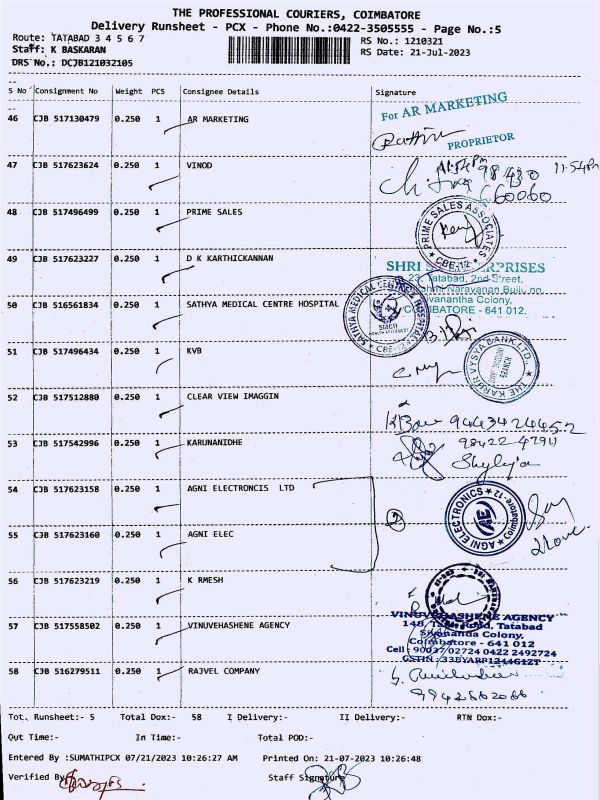 THE PROFESSIONAL COURIERS, COIMBATORE
Delivery Runsheet - PCX - Phone No.:0422-3505555 - Page No.:5
Route: TATABAD 3 4 5 6 7 RS No.: 1210321
Staff: K BASKARAN RS Date: 21-Jul-2023
DRS No.: DCJB121032105
S No Consignment No Weight PCS Consignee Details Signature
46 CJB 517130479 0.250 1 AR MARKETING
For AR MARKETING
PROPRIETOR
47 CJB 517623624 0.250 1 VINOD
11:54pm
11:54pm
98430
660060
48 CJB 517496499 0.250 1 PRIME SALES
PRIME SALES ASSOCIATES
CBE-12
49 CJB 517623227 0.250 1 D K KARTHICKANNAN
SHRI
Tatabad, 2nd Street,
Narayanan
Colony,
641 012.
50 CJB 516561834 0.250 1 SATHYA MEDICAL CENTRE HOSPITAL
SATHYA MEDICAL CENTRE & HOSPITAL
SMCH
51 CJB 517496434 0.250 1 KVB
THE KARUR VYSYA BANK LTD.,
BRANCH
52 CJB 517512880 0.250 1 CLEAR VIEW IMAGGIN
9443424452
53 CJB 517542996 0.250 1 KARUNANIDHE
98422-47911
Shylaja
54 CJB 517623158 0.250 1 AGNI ELECTRONCIS LTD
2
AGNI ELECTRONICS
Coimbatore-12
55 CJB 517623160 0.250 1 AGNI ELEC
56 CJB 517623219 0.250 1 K RMESH
57 CJB 517558502 0.250 1 VINUVEHASHENE AGENCY
VINUVEHASHENE AGENCY
Road, Tatabad
Sivananda Colony,
Coimbatore - 641 012
Cell : 90037 02724 0422 2492724
GSTIN :33BYARP1244G1ZT
58 CJB 516279511 0.250 1 RAJVEL COMPANY
9942662066
Tot. Runsheet:- 5 Total Dox:- 58 I Delivery:- II Delivery:- RTN Dox:-
Out Time:- In Time:- Total POD:-
Entered By :SUMATHIPCX 07/21/2023 10:26:27 AM Printed On: 21-07-2023 10:26:48
Verified By Staff Signature